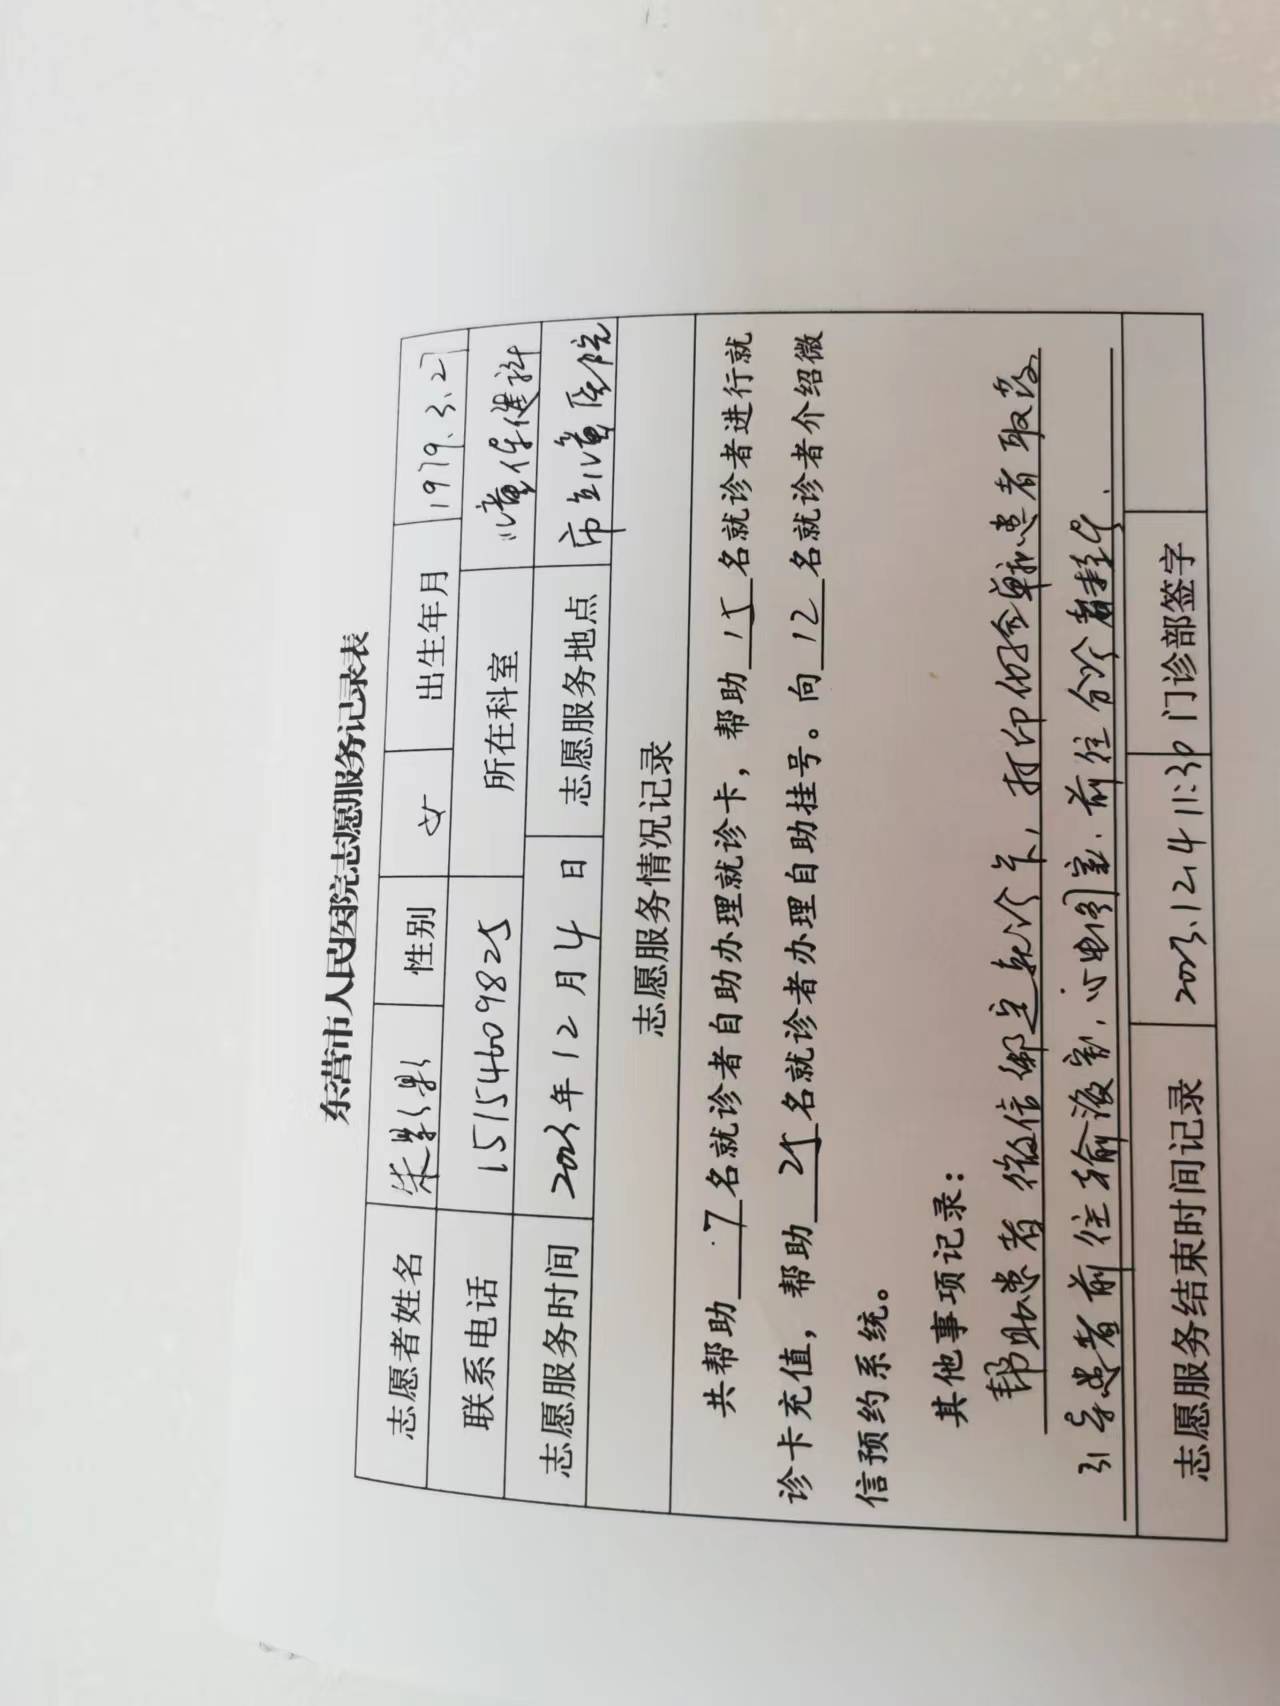 东营市人民医院志愿服务记录表
志愿者姓名 朱 性别 女 出生年月 1979.3.27
联系电话 15154609825 所在科室 儿童保健科
志愿服务时间 2023年12月4日 志愿服务地点 市立儿童医院
志愿服务情况记录
共帮助 7 名就诊者自助办理就诊卡，帮助 15 名就诊者进行就
诊卡充值，帮助 25 名就诊者办理自助挂号。向 12 名就诊者介绍微
信预约系统。
其他事项记录：
帮助患者微信绑定就诊卡，打印化验单和患者取药
引导患者前往输液室，心电图室，前往分诊
志愿服务结束时间记录 2023.12.4 11:30 门诊部签字